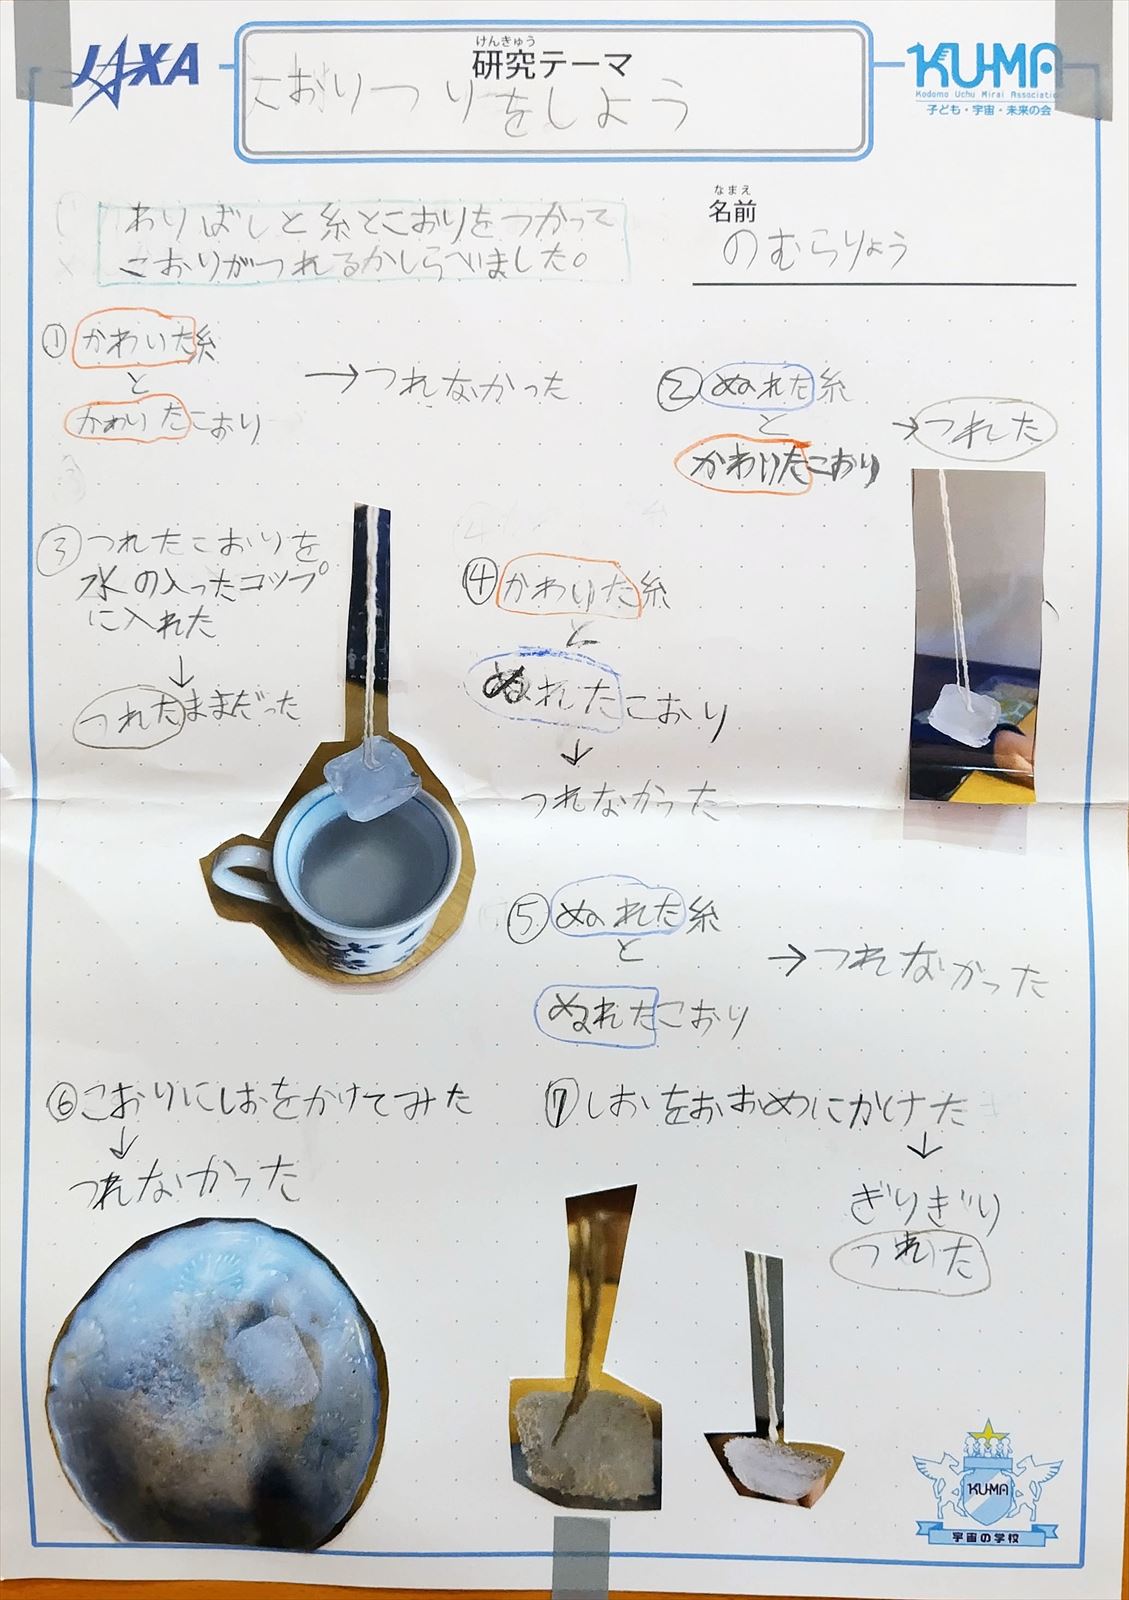 JAXA
けんきゅう
研究テーマ
こおりつりをしよう
KU-MA
Kodomo Uchu Mirai Association
子ども・宇宙・未来の会
わりばしと糸とこおりをつかって
こおりがつれるかしらべました。
なまえ
名前
のむらりょう
①かわいた糸
と
かわいたこおり
→つれなかった
②ぬれた糸
と
かわいたこおり
→つれた
③つれたこおりを
水の入ったコップ
に入れた
↓
つれたままだった
④かわいた糸
と
ぬれたこおり
↓
つれなかった
⑤ぬれた糸
と
ぬれたこおり
→つれなかった
⑥こおりにしおをかけてみた
↓
つれなかった
⑦しおをおおめにかけた
↓
ぎりぎり
つれた
KU-MA
宇宙の学校